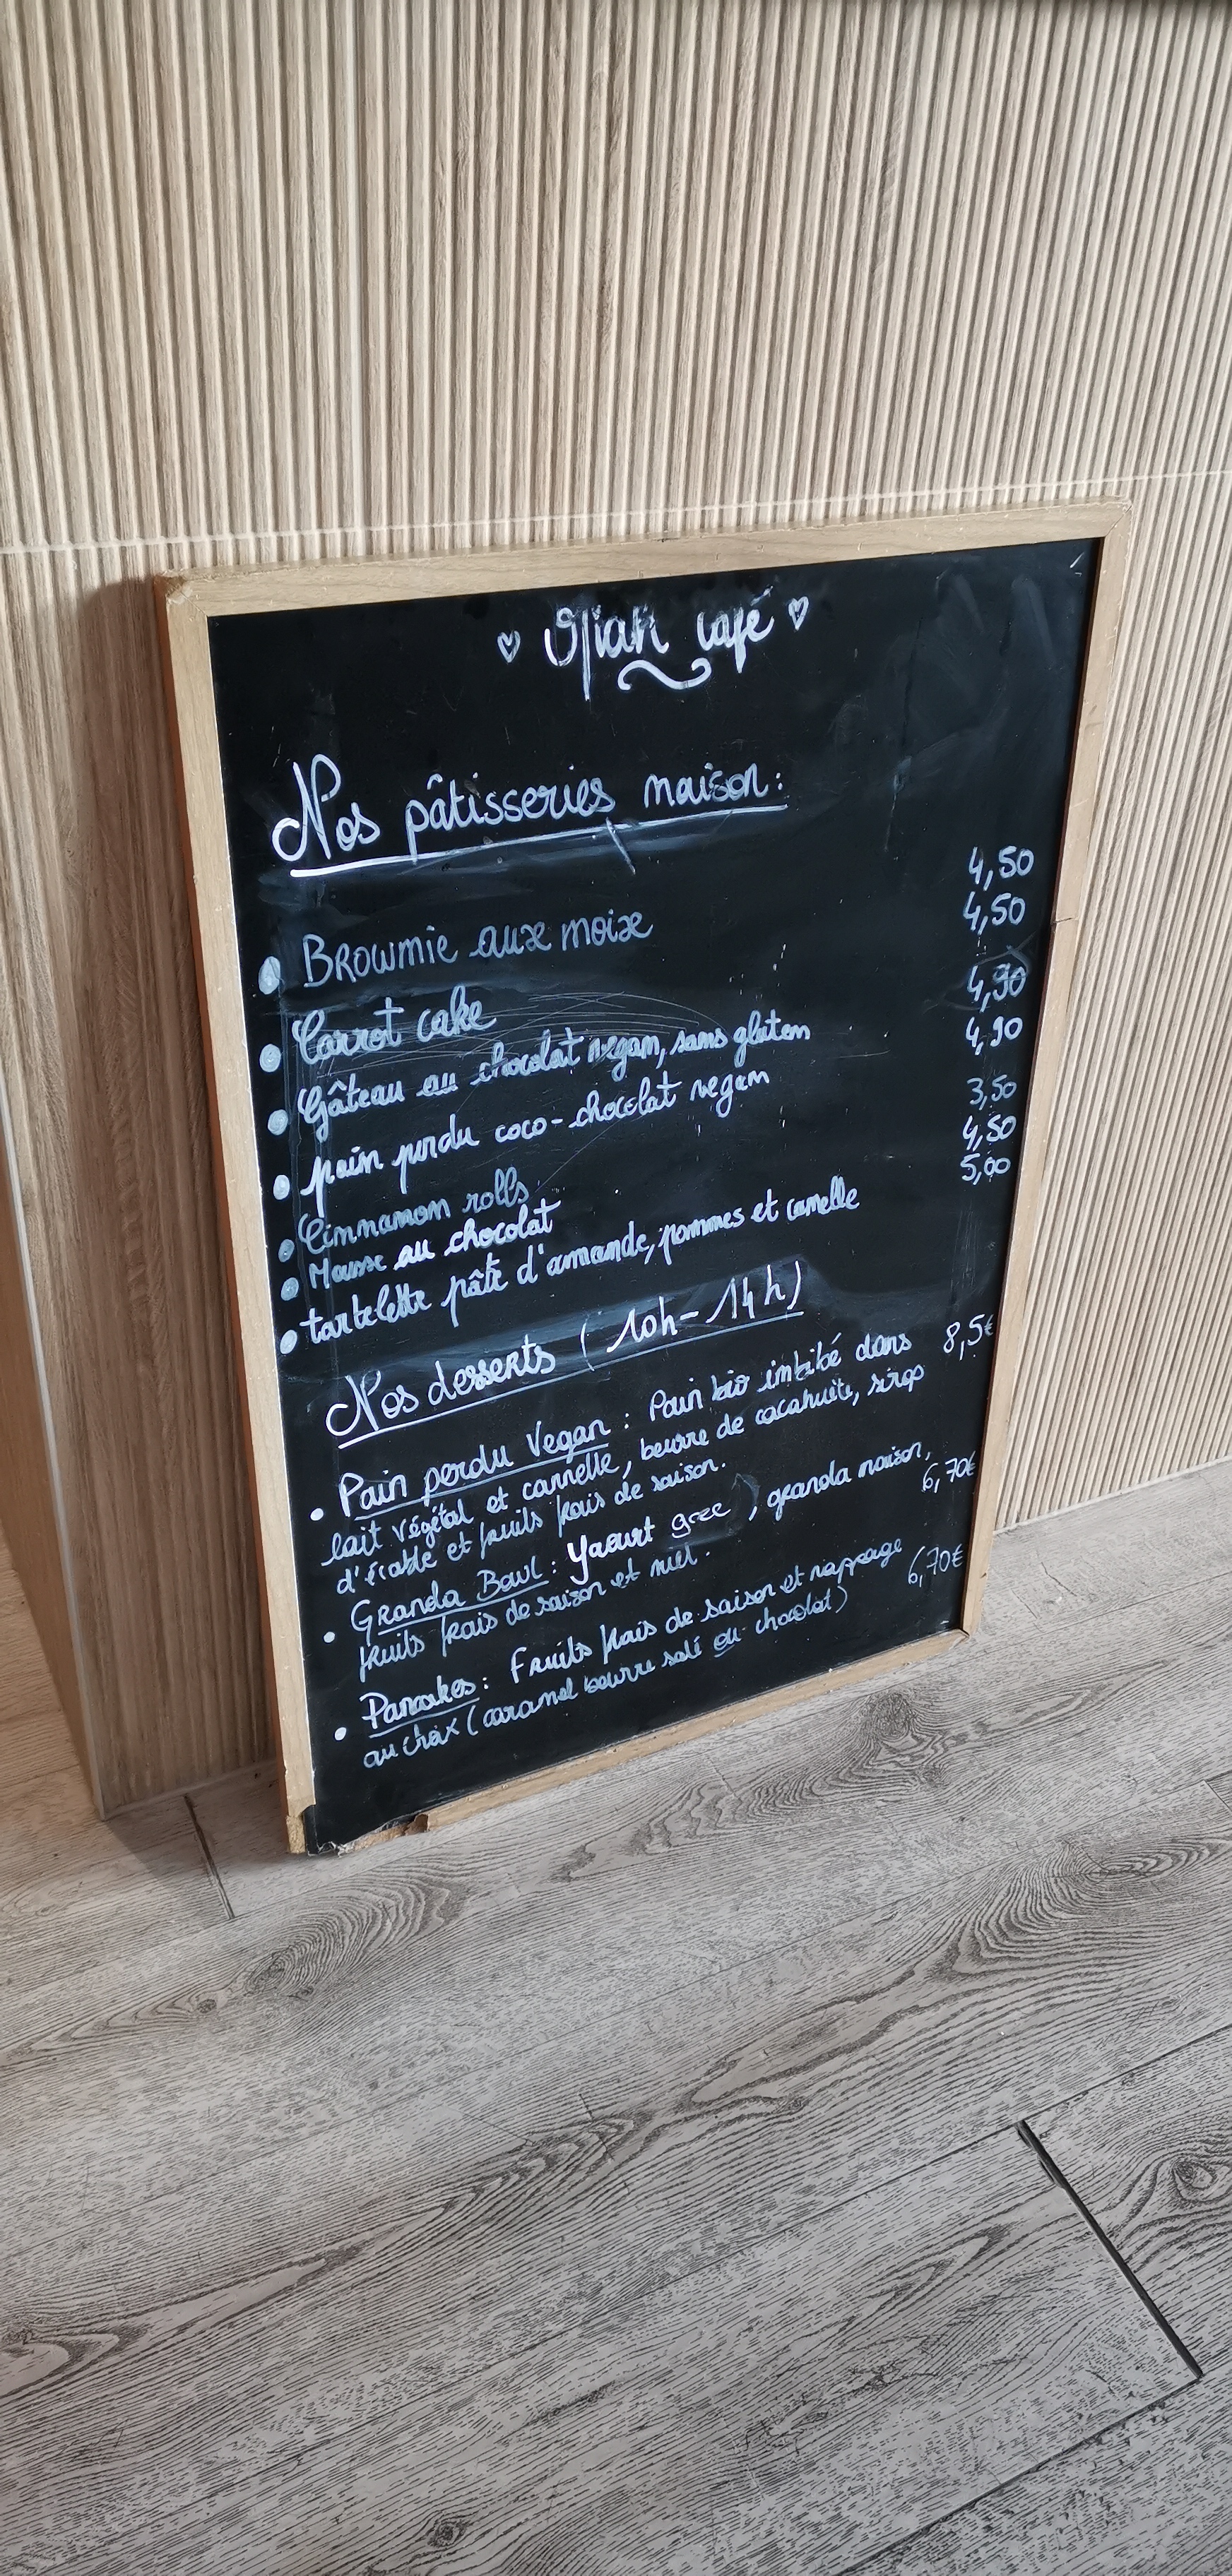 café
Nos pâtisseries maison:
Brownie aux noix 4,50
Carrot cake 4,50
Gâteau au chocolat vegan, sans gluten 4,90
pain perdu coco-chocolat vegan 4,90
Cinnamon rolls 3,50
Mousse au chocolat 4,50
tartelette pâte d'amande, pommes et canelle 5,00
Nos desserts (10h-14h)
Pain perdu Vegan: Pain bio imbibé dans 8,5€
lait végétal et cannelle, beurre de cacahuète, sirop
d'érable et fruits frais de saison.
Granola Bowl: Yaourt grec, granola maison, 6,70€
fruits frais de saison et miel.
Pancakes: Fruits frais de saison et nappage 6,70€
au choix (caramel beurre salé ou chocolat)